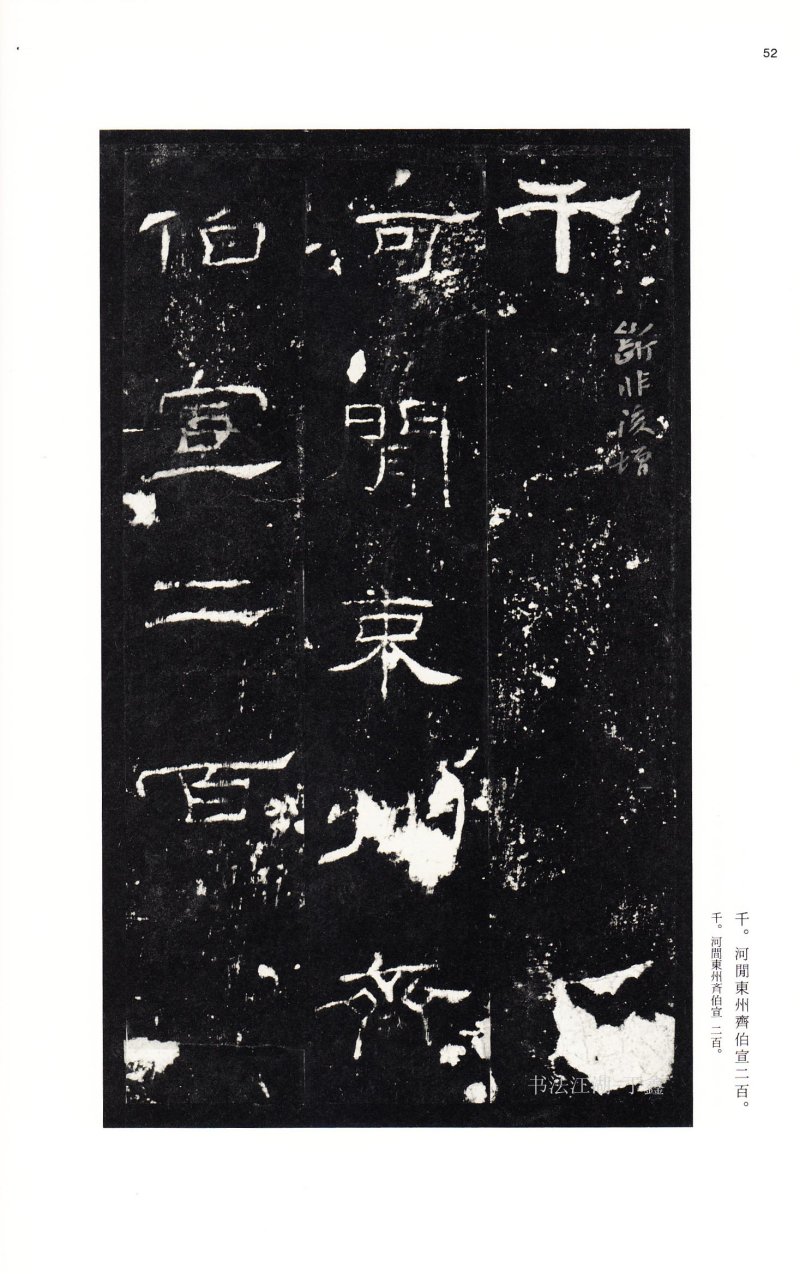 52
千
斷非後增
河閒東州齊
伯宣二百
千。河閒東州齊伯宣二百。
千。河間東州斉伯宣 二百。
书法江湖 于鑫